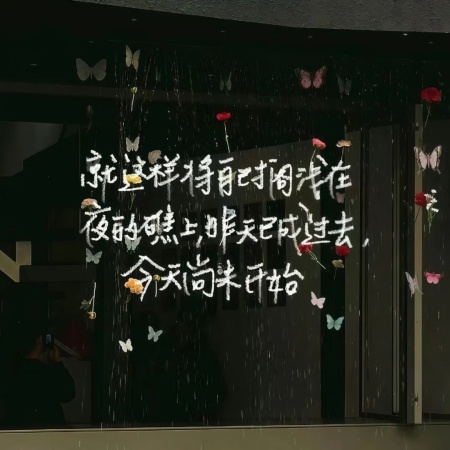 就这样将自己搁浅在
夜的礁上,昨天已成过去,
今天尚未开始